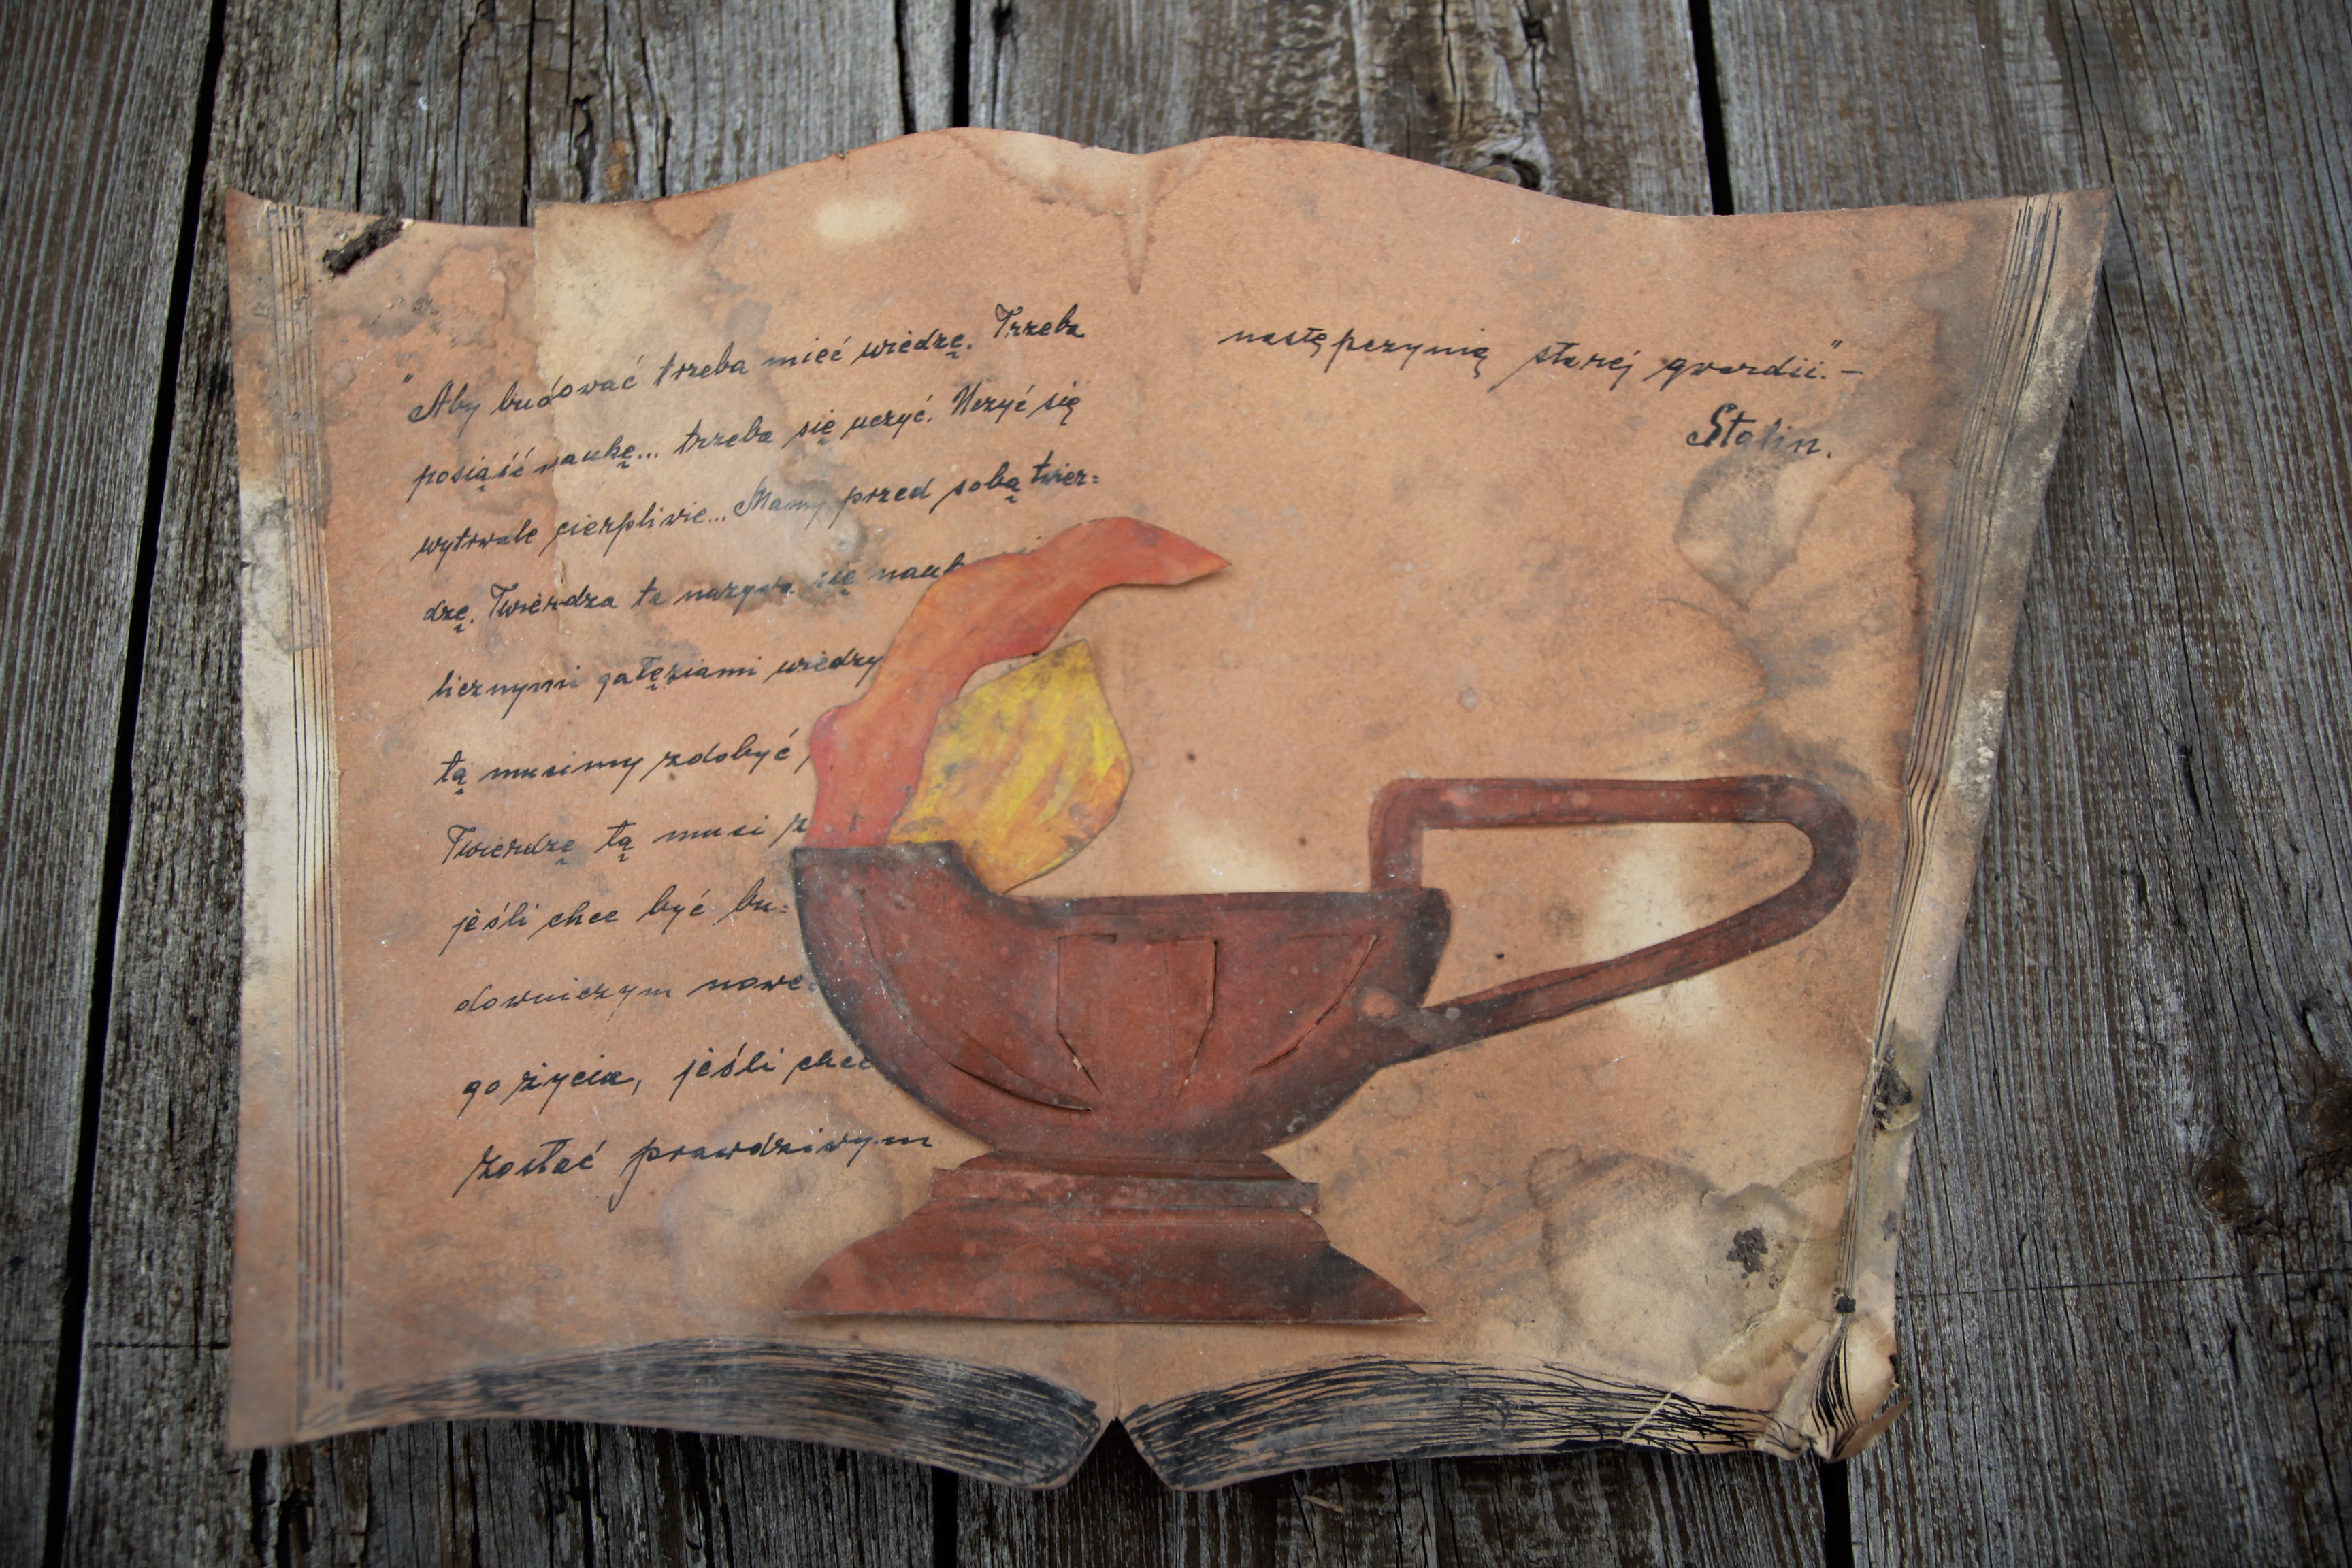 "Aby budować trzeba mieć wiedzę. Trzeba
posiąść naukę... trzeba się uczyć. Uczyć się
wytrwale cierpliwie... Mamy przed sobą twier=
dzę. Twierdza ta nazywa się nauk
licznymi gałęziami wiedzy
tą musimy zdobyć
Twierdzę tą musi
jeśli chce być bu=
downiczym nowe=
go życia, jeśli chce
zostać prawdziwym
następczynią starej gwardii."-
Stalin.